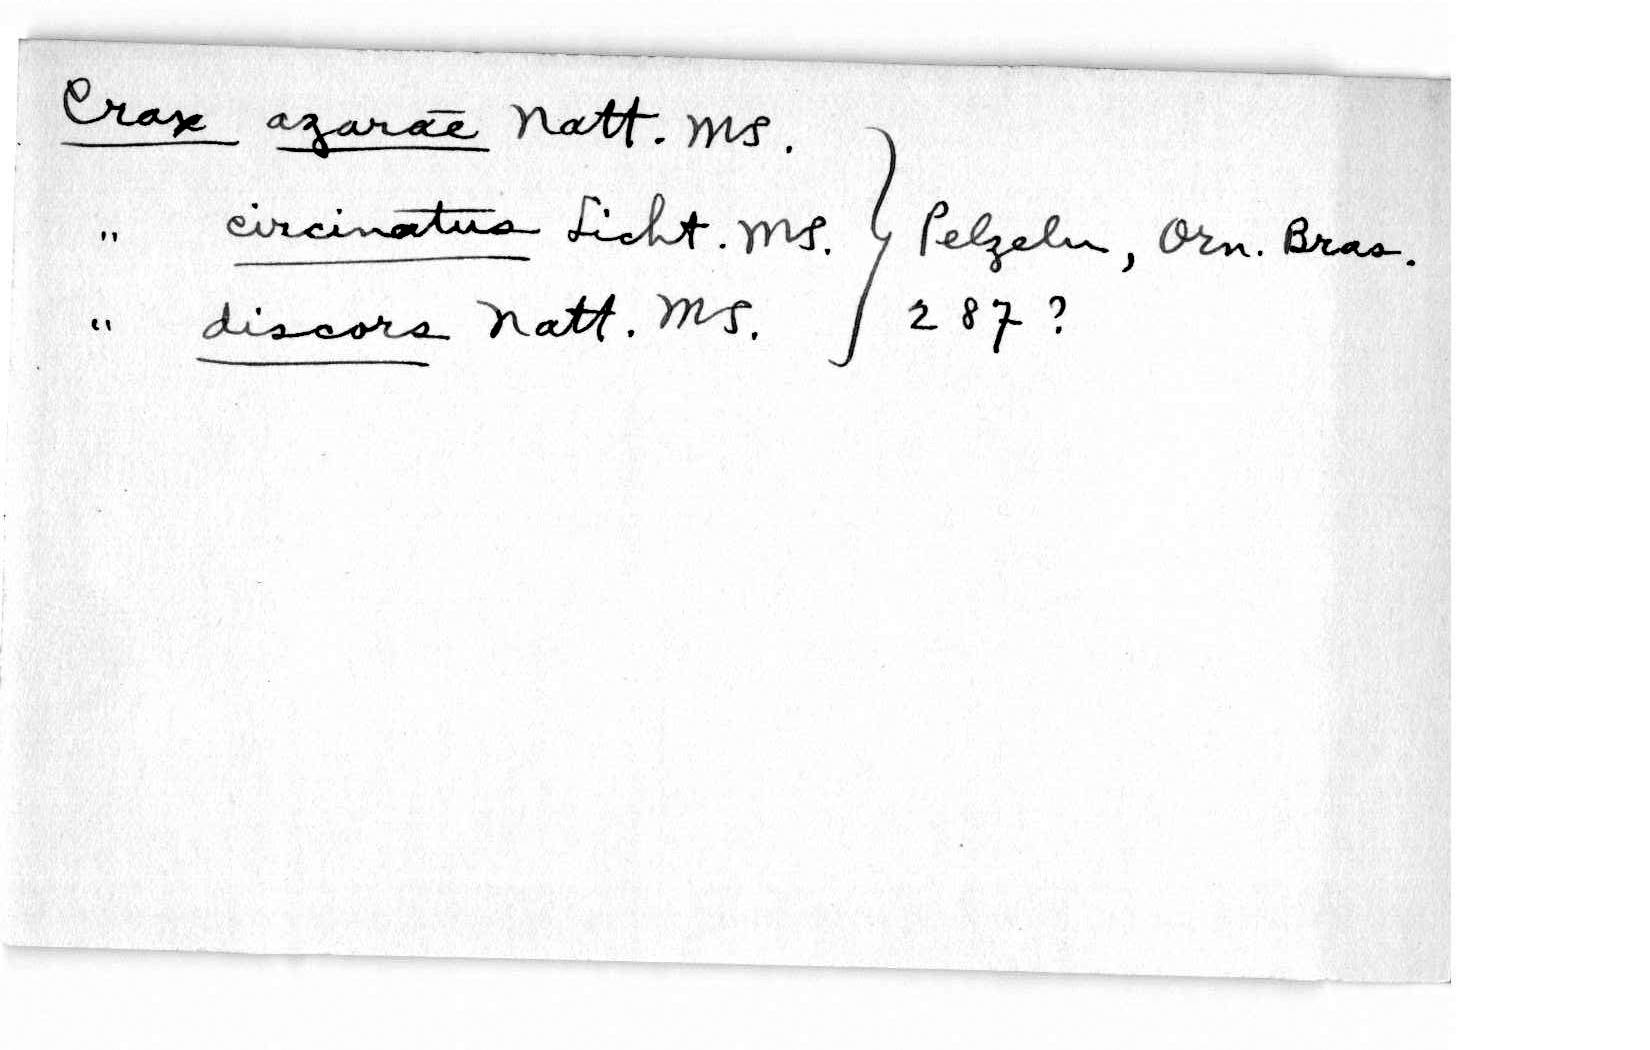 Crax azarae Natt. Ms.
" circinatus Licht. Ms. } Pelzeln, Orn. Bras.
" discors Natt. Ms. 287?